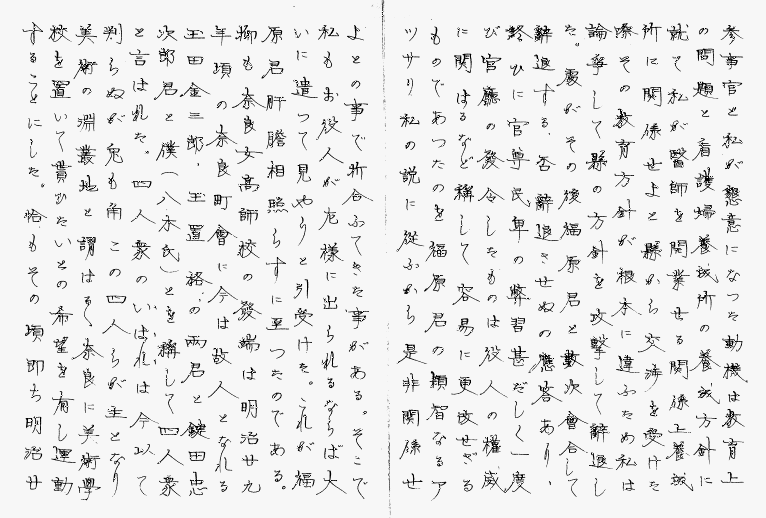 参事官と私が懇意になつた動機は教育上
の問題と看護婦養成所の養成方針に
就て私が醫師を開業せる関係上養成
所に関係せよと縣から交渉を受けた
際その教育方針が根本に違ふため私は
論争して縣の方針を攻撃して辞退し
た。處がその後福原君と數次會合して
辞退する、否辞退させぬの應答あり、
終ひに官尊民卑の弊習甚だしく一度
び官廳の發令したものは役人の權威
に関はるなど稱して容易に更改せざる
ものであつたのを福原君の頴智なるア
ツサリ私の説に從ふから是非関係せ
よとの事で折合ふてきた事がある。そこで
私もお役人が左様に出られるならば大
いに遣つて見やうと引受けた。これが福
原君肝膽相照らすに至つたのである。
抑も奈良女高師校の發端は明治廿九
年頃の奈良町會に今は故人となれる
玉田金三郎、玉置格の両君と鍵田忠
次郎君と僕(八木氏)とを稱して四人衆
と言はれた。四人衆のいはれは今以て
判らぬが兎も角この四人らが主となり
美術の淵叢地と謂はるゝ奈良に美術學
校を置いて貰ひたいとの希望を有し運動
することにした。恰もその頃即ち明治廿